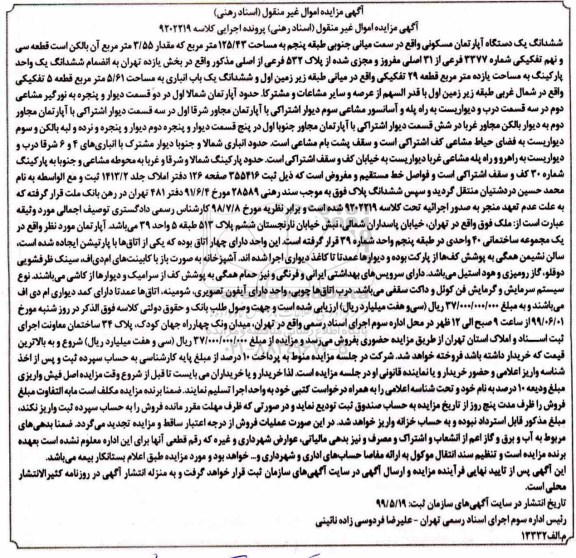 آگهی مزایده اموال غیر منقول (اسناد رهنی)
آگهی مزایده اموال غیر منقول (اسناد رهنی) پرونده اجرایی کلاسه ۹۲۰۲۲۱۹
ششدانگ یک دستگاه آپارتمان مسکونی واقع در سمت میانی جنوبی طبقه پنجم به مساحت ۱۲۵/۴۳ متر مربع که مقدار ۳/۵۵ متر مربع آن بالکن است قطعه سی
و نهم تفکیکی شماره ۳۳۷۷ فرعی از ۳۱ اصلی مفروز و مجزی شده از پلاک ۵۳۲ فرعی از اصلی مذکور واقع در بخش یازده تهران به انضمام ششدانگ یک واحد
پارکینگ به مساحت یازده متر مربع قطعه ۲۹ تفکیکی واقع در میانی طبقه زیر زمین اول و ششدانگ یک باب انباری به مساحت ۵/۶۱ متر مربع قطعه ۵ تفکیکی
واقع در شمال غربی طبقه زیر زمین اول با قدر السهم از عرصه و سایر مشاعات و مشترکا. حدود آپارتمان شمالا اول در دو قسمت دیوار و پنجره به نورگیر مشاعی
دوم در سه قسمت درب و دیواریست به راه پله و آسانسور مشاعی سوم دیوار اشتراکی با آپارتمان مجاور شرقا اول در سه قسمت دیوار اشتراکی با آپارتمان مجاور
دوم به دیوار بالکن مجاور غربا در شش قسمت دیوار اشتراکی با آپارتمان مجاور جنوبا اول در پنج قسمت دیوار و پنجره دوم دیوار و پنجره و نرده و لبه بالکن و سوم
دیواریست به فضای حیاط مشاعی کف اشتراکی است و سقف پشت بام مشاعی است. حدود انباری شمالا و جنوبا دیوار مشترک با انباری‌های ۴ و ۶ شرقا درب و
دیواریست به راهرو و راه پله مشاعی غربا دیواریست به خیابان کف و سقف اشتراکی است. حدود پارکینگ شمالا و شرقا و غربا به محوطه مشاعی و جنوبا به پارکینگ
شماره ۳۰ کف و سقف اشتراکی است و فواصل خط مستقیم و مفروض است که ذیل ثبت ۳۵۵۴۱۶ صفحه ۱۲۶ دفتر املاک جلد ۱۴۱۳/۲ ثبت و مع الواسطه به نام
محمد حسین دردشتیان منتقل گردید و سپس ششدانگ پلاک فوق به موجب سند رهنی ۲۸۵۸۹ مورخ ۹۱/۶/۴ دفتر ۴۸۱ تهران در رهن بانک ملت قرار گرفته که
به علت عدم تعهد منجر به صدور اجرائیه تحت کلاسه ۹۲۰۲۲۱۹ شده است و برابر نظریه مورخ ۹۸/۷/۸ کارشناس رسمی دادگستری توصیف اجمالی مورد وثیقه
عبارت است از: ملک فوق واقع در تهران، خیابان پاسداران شمالی، نبش خیابان نارنجستان ششم پلاک ۵۱۳ طبقه ۵ واحد ۳۹ می‌باشد. آپارتمان مورد نظر واقع در
یک مجموعه ساختمانی ۴۰ واحدی در طبقه پنجم واحد شماره ۳۹ قرار گرفته است. این واحد دارای چهار اتاق بوده که یکی از اتاقها با پارتیشن ایجاده شده است،
سالن نشیمن همگی به پوشش کف‌ها از پارکت بوده و دیوارها عمدتا تا کاغذ دیواری اجرا شده اند. آشپزخانه به صورت باز با کابینت‌های ام‌دی‌اف، سینک ظرفشویی
دوقلو، گاز رومیزی و هود استیل می‌باشد. دارای سرویس‌های بهداشتی ایرانی و فرنگی و نیز حمام همگی به پوشش کف از سرامیک و دیوارها از کاشی می‌باشند. نوع
سیستم سرمایش و گرمایش فن کوئل و داکت سقفی می‌باشد. درب اتاق‌ها چوبی، واحد دارای آیفون تصویری، شومینه، اتاق‌ها عمدتا دارای کمد دیواری ام دی اف
می‌باشند و به مبلغ ۳۷/۰۰۰/۰۰۰/۰۰۰ ریال (سی و هفت میلیارد ریال) ارزیابی شده است و جهت وصول طلب بانک و حقوق دولتی کلاسه فوق الذکر در روز شنبه مورخ
۹۹/۰۶/۰۱ از ساعت ۹ صبح الی ۱۲ ظهر در محل اداره سوم اجرای اسناد رسمی واقع در تهران، میدان ونک چهارراه جهان کودک، پلاک ۳۴ ساختمان معاونت اجرای
ثبت اسناد و املاک استان تهران از طریق مزایده حضوری بفروش می‌رسد و مزایده از مبلغ ۳۷/۰۰۰/۰۰۰/۰۰۰ ریال (سی و هفت میلیارد ریال) شروع و به بالاترین
قیمت که خریدار داشته باشد فروخته خواهد شد. شرکت در جلسه مزایده منوط به پرداخت ۱۰ درصد از مبلغ پایه کارشناسی به حساب سپرده ثبت و پس از اخذ
شناسه واریز اعلامی و حضور خریدار و یا نماینده قانونی او در جلسه مزایده است. لذا خریدار و یا خریداران می بایست تا قبل از شروع وقت مزایده اصل فیش واریزی
مبلغ ودیعه ۱۰ درصد به نام خود و تحت شناسه اعلامی را به همراه درخواست کتبی خود به واحد اجرا تسلیم نمایند. ضمنا برنده مزایده مکلف است مابه التفاوت مبلغ
فروش را ظرف مدت پنج روز از تاریخ مزایده به حساب صندوق ثبت تودیع نماید و در صورتی که ظرف مهلت مقرر مانده فروش را به حساب سپرده ثبت واریز نکند،
مبلغ مذکور قابل استرداد نبوده و به حساب خزانه واریز خواهد شد. در این صورت عملیات فروش از درجه اعتبار ساقط و مزایده تجدید می‌گردد. ضمنا بدهی‌های
مربوط به آب و برق و گاز اعم از انشعاب و اشتراک و مصرف و نیز بدهی مالیاتی، عوارض شهرداری و غیره که رقم قطعی آنها برای این اداره معلوم نشده است بعهده
برنده مزایده است و تنظیم سند انتقال موکول به ارائه مفاصا حساب‌های اداری و شهرداری و... خواهد بود و مورد مزایده طبق اعلام بستانکار بیمه می‌باشد.
این آگهی پس از تایید نهایی فرآینده مزایده و ارسال آگهی در سایت آگهی‌های سازمان ثبت قرار خواهد گرفت و به منزله انتشار آگهی در روزنامه کثیرالانتشار
محلی است.
تاریخ انتشار در سایت آگهی‌های سازمان ثبت: ۹۹/۵/۱۹
رئیس اداره سوم اجرای اسناد رسمی تهران - علیرضا فردوسی زاده نائینی
م.الف ۱۳۳۳۲